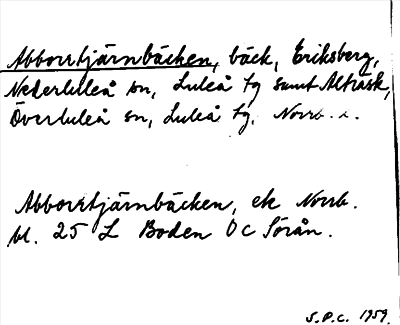 Abborrtjärnbäcken, bäck, Eriksberg,
Nederluleå sn, Luleå tg samt Alträsk,
Överluleå sn, Luleå tg. Norrb. l.
Abborrtjärnbäcken, ek Norrb.
bl. 25 L Boden OC Sörån.
S.P.C. 1959.